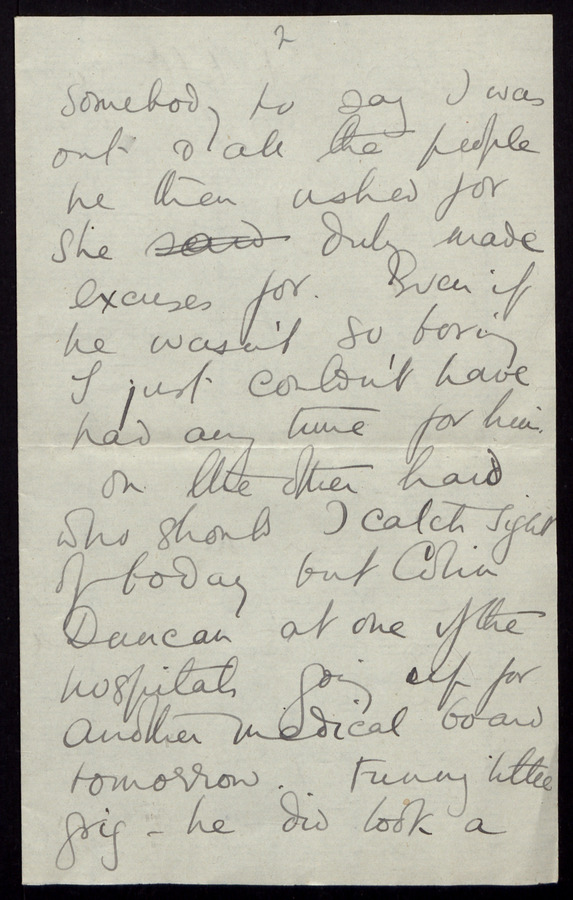 2
Somebody to say I was
out & all the people
he then asked for
She said duly made
excuses for. Even if
he wasn't so boring
I just couldn't have
had any time for him.
On the other hand
who should I catch sight
of today but Colin
Duncan at one of the
hospitals going up for
another medical board
tomorrow. Funny little
prig - he did look a